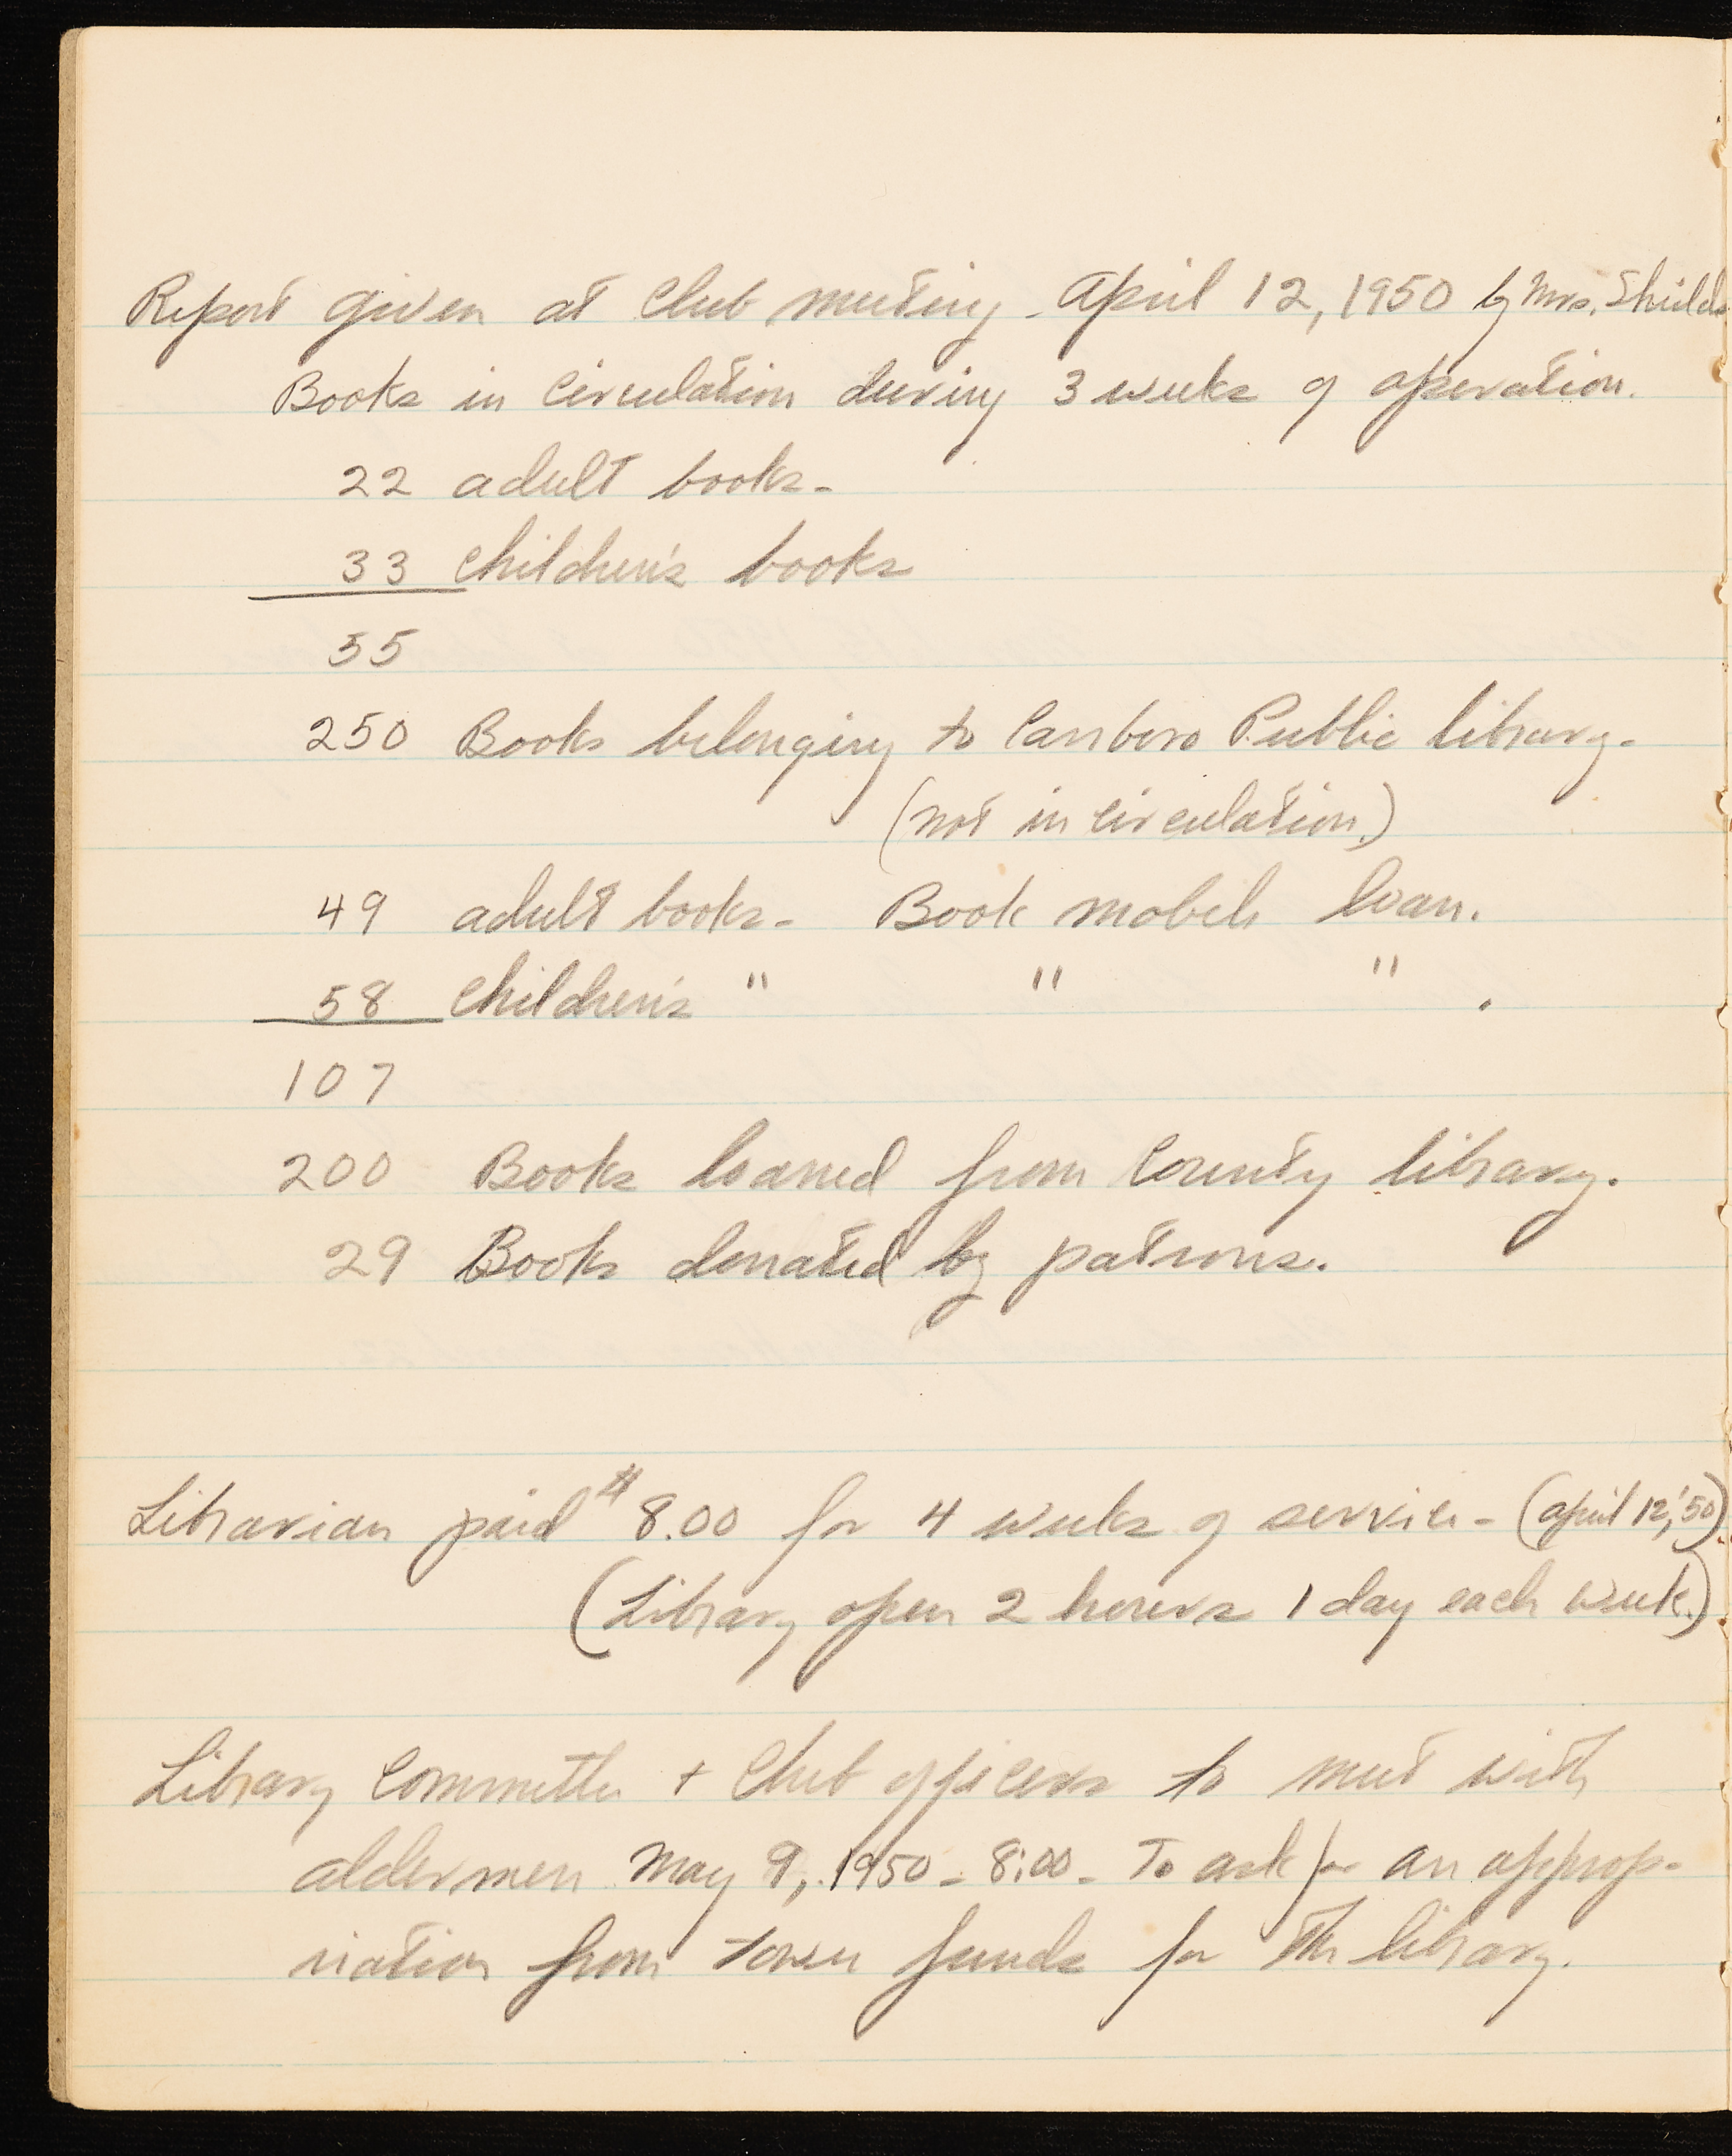 Report given at Club meeting - April 12, 1950 by Mrs. Shields
Books in circulation during 3 weeks of operation.
22 adult books -
33 children's books
55
250 Books belonging to Carrboro Public library -
(not in circulation.)
49 adult books - Book mobile loan.
58 children's " " " .
107
200 Books loaned from County library.
29 Books donated by patrons.
Librarian paid $8.00 for 4 weeks of service - (April 12, '50)
(Library open 2 hours 1 day each week.)
Library Committee + Club officers to meet with
aldermen May 9, 1950 - 8:00 - To ask for an approp-
riation from town funds for the library.